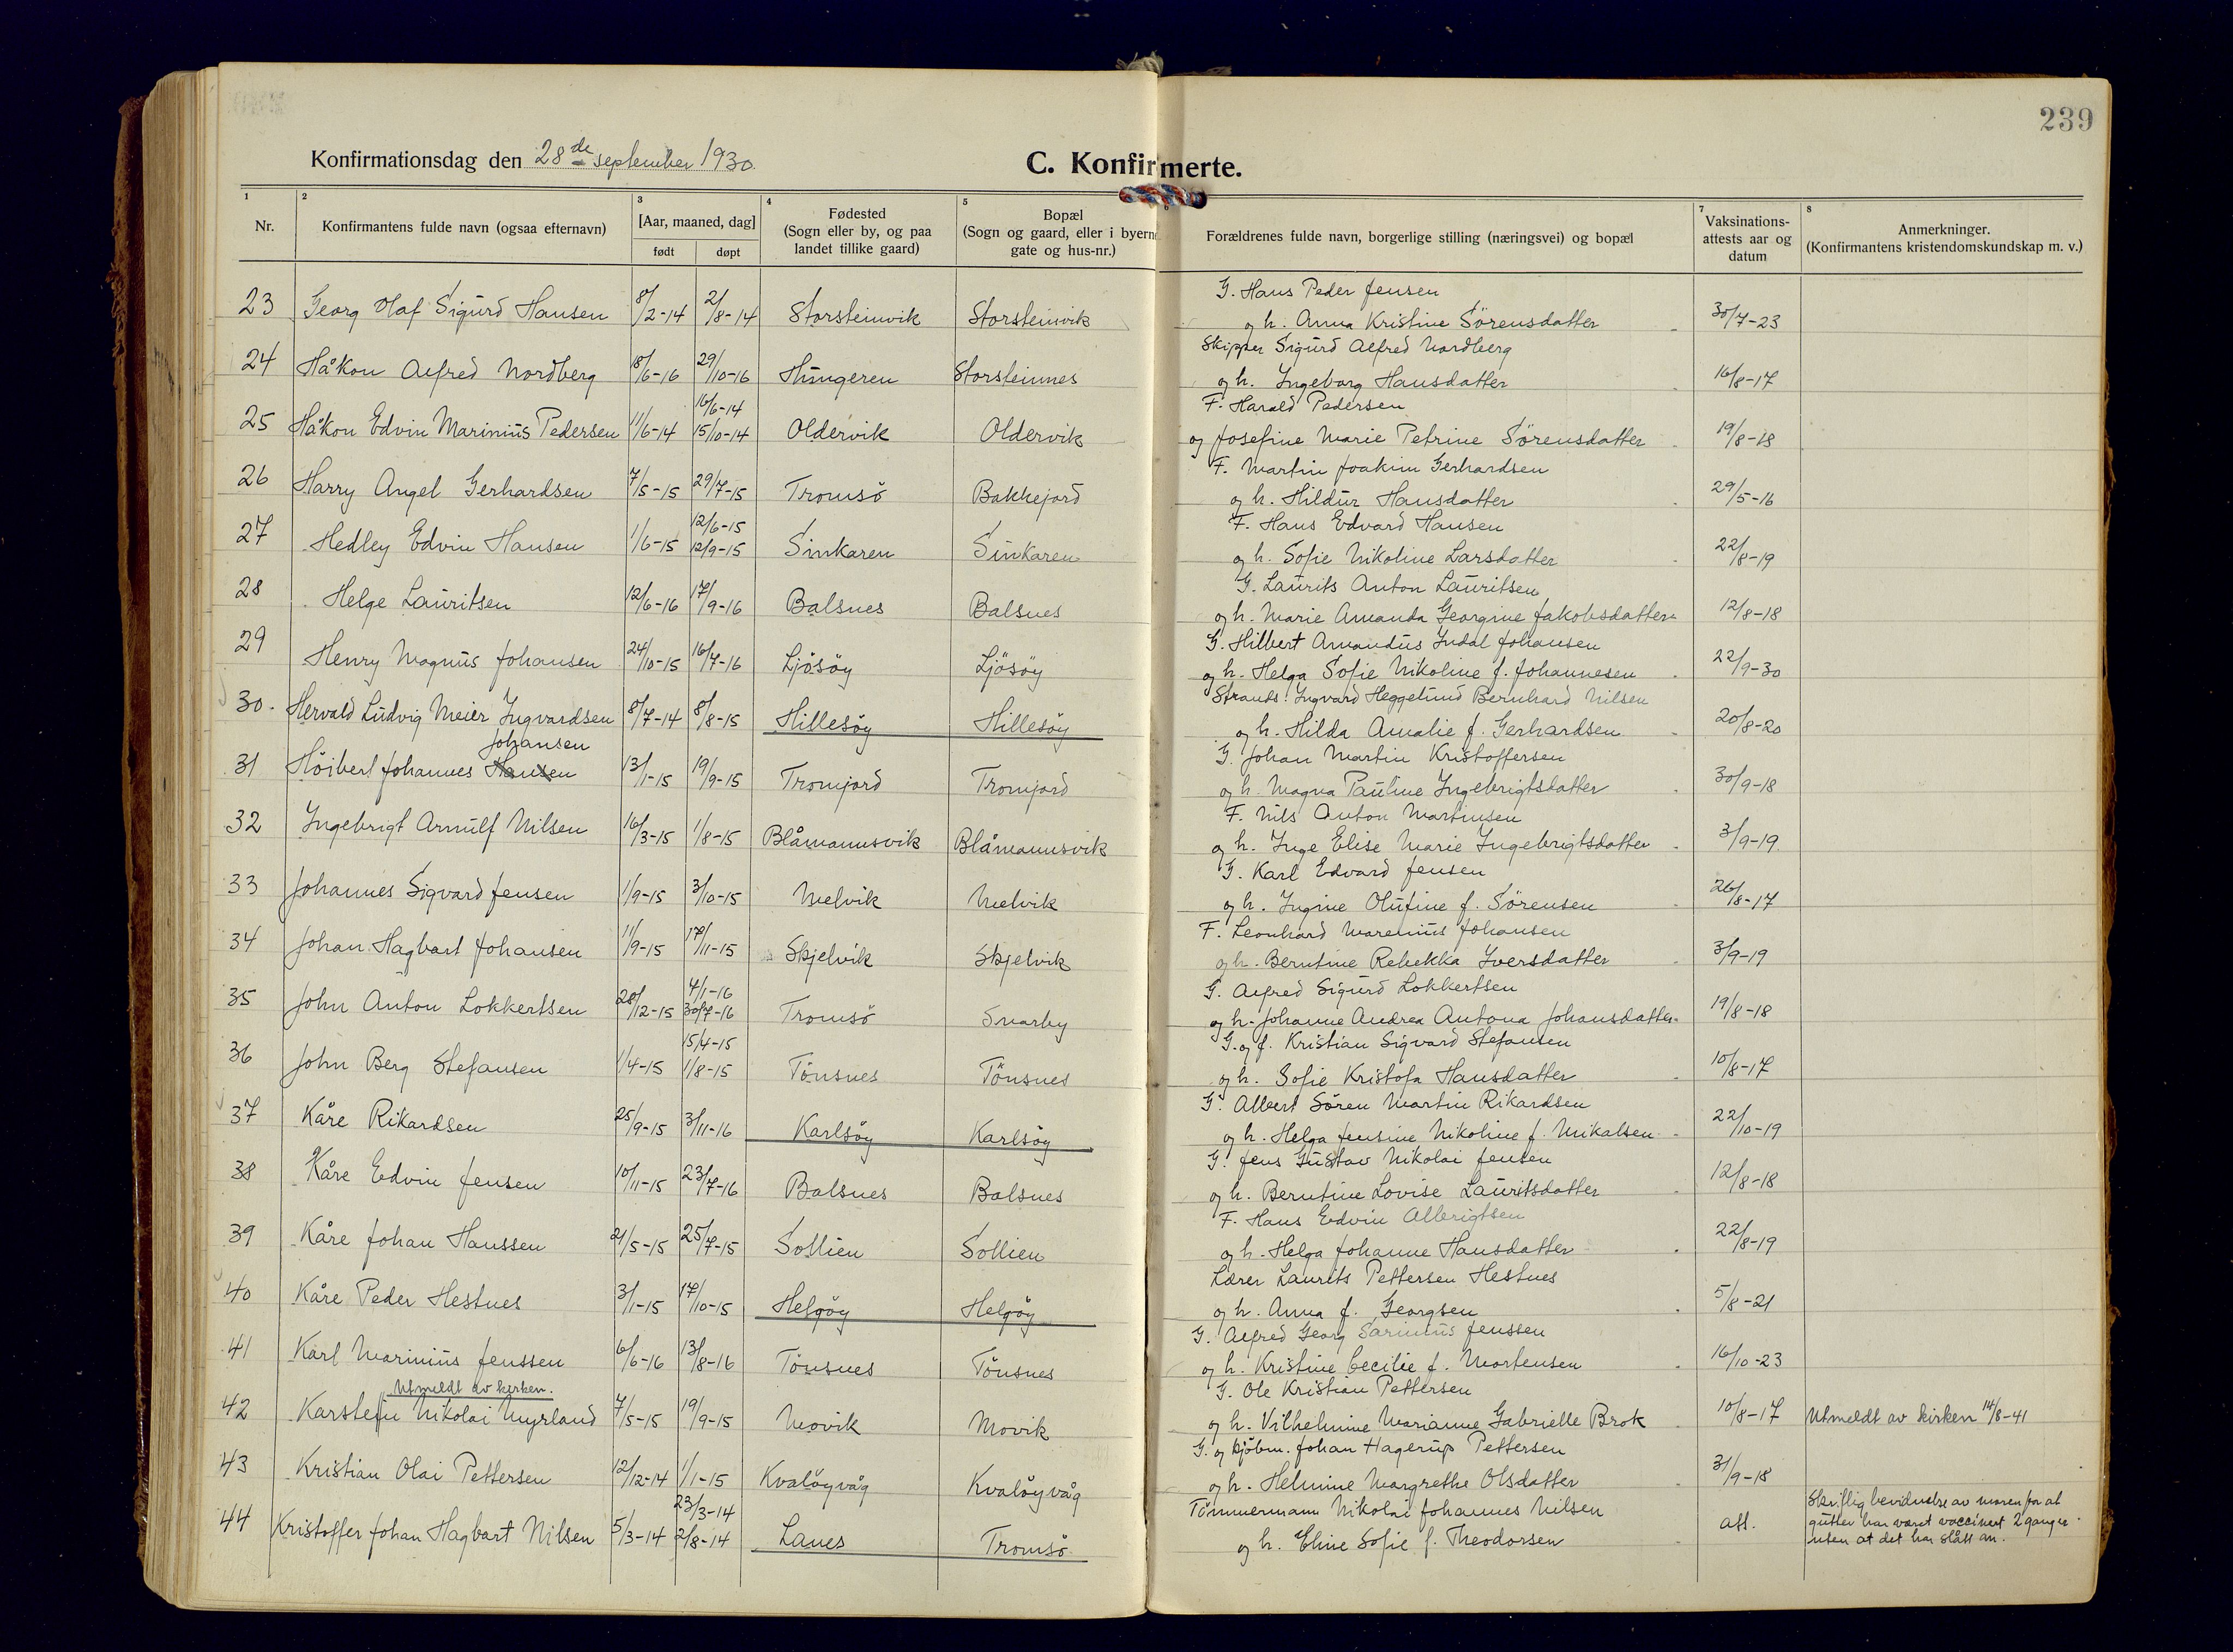 239
Konfirmationsdag den 28de september 1930.
C. Konfirmerte.
1 2 3 4 5 6 7 8
Nr. Konfirmantens fulde navn (ogsaa efternavn) [Aar, maaned, dag] født døpt Fødested (Sogn eller by, og paa landet tillike gaard) Bopæl (Sogn og gaard, eller i byerne gate og hus-nr.) Forældrenes fulde navn, borgerlige stilling (næringsvei) og bopæl Vaksinations-attests aar og datum Anmerkninger. (Konfirmantens kristendomskundskap m. v.)
G. Hans Peder Jensen
23 Georg Olaf Sigurd Hansen 8/2-14 2/8-14 Storsteinvik Storsteinvik og h. Anna Kristine Sörensdatter 30/7-23
Skipper Sigurd Alfred Nordberg
24 Håkon Alfred Nordberg 18/6-16 29/10-16 Hungeren Storsteinnes og h. Ingeborg Hansdatter 16/8-17
16/6-14 F. Harald Pedersen
25 Håkon Edvin Marinius Pedersen 11/6-14 15/10-14 Oldervik Oldervik og Josefine Marie Petrine Sörensdatter 19/8-18
F. Martin Joakim Gerhardsen
26 Harry Angel Gerhardsen 7/5-15 29/7-15 Tromsö Bakkejord og h. Hildur Hansdatter 29/5-16
12/6-15 F. Hans Edvard Hansen
27 Hedley Edvin Hansen 1/6-15 12/9-15 Sinkaren Sinkaren og h. Sofie Nikoline Larsdatter 22/8-19
G. Laurits Anton Lauritsen
28 Helge Lauritsen 12/6-16 17/9-16 Balsnes Balsnes og h. Marie Amanda Georgine Jakobsdatter 12/8-18
G. Hilbert Amandus Indal Johansen
29 Henry Magnus Johansen 24/10-15 16/7-16 Ljösöy Ljösöy og h. Helga Sofie Nikoline f. Johannesen 22/9-30
Strands. Ingvard Heggelund Bernhard Nilsen
30. Hervald Ludvig Meier Ingvardsen 8/7-14 8/8-15 Hillesöy Hillesöy og h. Hilda Amalie f. Gerhardsen 20/8-20
Johansen G. Johan Martin Kristoffersen
31 Höibert Johannes Hansen 13/1-15 19/9-15 Tromjord Tromjord og h. Magna Pauline Ingebrigtsdatter 30/9-18
F. Nils Anton Martinsen
32 Ingebrigt Arnulf Nilsen 16/3-15 1/8-15 Blåmannsvik Blåmannsvik og h. Inge Elise Marie Ingebrigtsdatter 3/9-19
G. Karl Edvard Jensen
33 Johannes Sigvard Jensen 1/9-15 3/10-15 Melvik Melvik og h. Ingine Olufine f. Sörensen 26/8-17
F. Leonhard Marenius Johansen
34 Johan Hagbart Johansen 11/9-15 17/11-15 Skjelvik Skjelvik og h. Berntine Rebekka Iversdatter 3/9-19
4/1-16 G. Alfred Sigurd Lokkertsen
35 John Anton Lokkertsen 28/12-15 30/7-16 Tromsö Snarby og h. Johanne Andrea Antona Johansdatter 19/8-18
15/4-15 G. og f. Kristian Sigvard Stefansen
36 John Berg Stefansen 1/4-15 1/8-15 Tönsnes Tönsnes og h. Sofie Kristofa Hansdatter 10/8-17
G. Albert Sören Martin Rikardsen
37 Kåre Rikardsen 25/9-15 3/11-16 Karlsöy Karlsöy og h. Helga Jensine Nikoline f. Mikalsen 22/10-19
G. Jens Gustav Nikolai Jensen
38 Kåre Edvin Jensen 10/11-15 23/7-16 Balsnes Balsnes og h. Berntine Lovise Lauritsdatter 12/8-18
F. Hans Edvin Albrigtsen
39 Kåre Johan Hanssen 21/5-15 25/7-15 Sollien Sollien og h. Helga Johanne Hansdatter 22/8-19
Lærer Laurits Pettersen Hestnes
40 Kåre Peder Hestnes 3/1-15 17/10-15 Helgöy Helgöy og h. Anna f. Georgsen 5/8-21
G. Alfred Georg Sarinius Jenssen
41 Karl Marinius Jenssen 6/6-16 13/8-16 Tönsnes Tönsnes og h. Kristine Cecilie f. Mortensen 16/10-23
Utmeldt av kirken. G. Ole Kristian Pettersen
42 Karstein Nikolai Myrland 7/5-15 19/9-15 Movik Movik og h. Vilhelmine Marianne Gabrielle Brok 10/8-17 Utmeldt av kirken 14/8-41
G. og kjöbm. Johan Hagerup Pettersen
43 Kristian Olai Pettersen 12/12-14 1/1-15 Kvalöyvåg Kvalöyvåg og h. Helmine Margrethe Olsdatter 31/9-18
23/3-14 Tömmermann Nikolai Johannes Nilsen Skriflig bevidnelse av moren for at
44 Kristoffer Johan Hagbart Nilsen 5/3-14 2/8-14 Lanes Tromsö og h. Eline Sofie f. Theodorsen att. gutten har været vaccinert 2 ganger
uten at det har slått an.